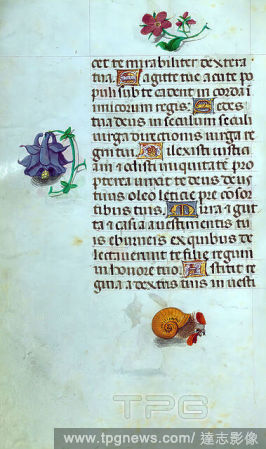 cet te mirabiliter dextera
tua. Sagitte tue acute po
puli sub te cadent in corda i
nimicorum regis. Sedes
tua deus in seculum seculi
uirga directionis uirga re
gni tui. Dilexisti iusticia
am et odisti iniquitatē pro
pterea unxit te deus deus
tuus oleo leticie pre cōsor
tibus tuis. Mirra et gut
ta et casia a uestimentis tu
is eburneis ex quibus de
lectauerunt te filie regum
in honore tuo. Astitit re
gina a dextris tuis in uesti
TPG
www.tpgnews.com/ 達志影像